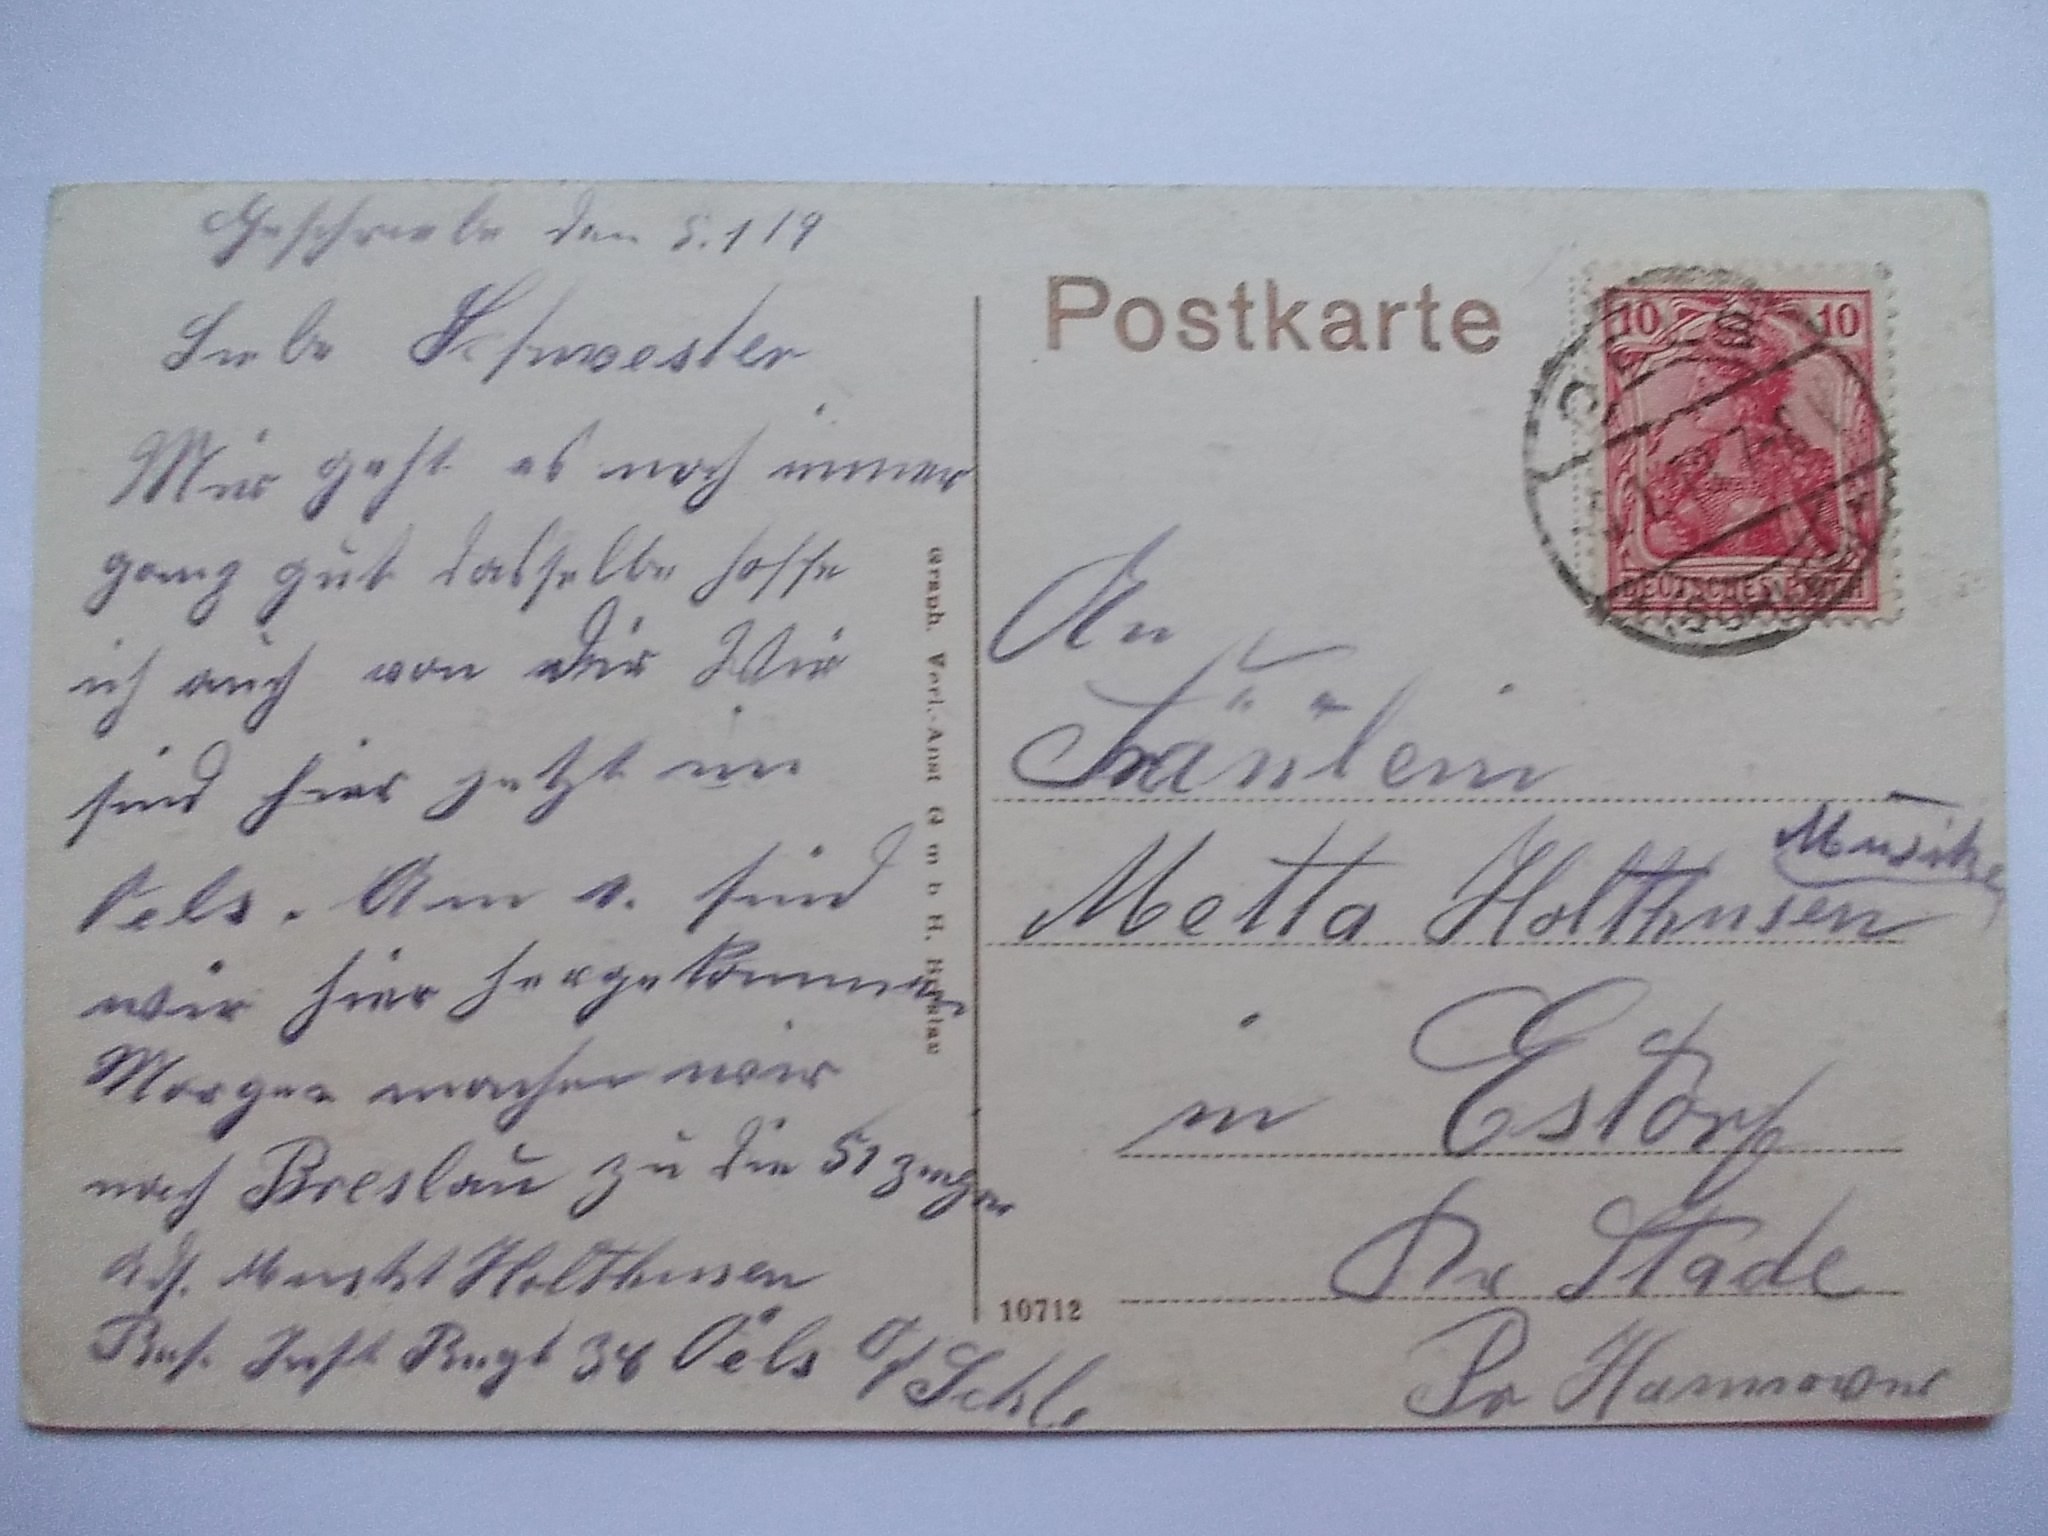 Geschriebe den 5.1 19
Liebe Schwester
Mir geht es noch immer
ganz gut dasselbe hoffe
ich auch von Dir Wir
sind hier jetzt in
Oels. Am 1. sind
wir hier hergekommen
Morgen machen wir
nach Breslau zu die 51
Holthusen
Inft Regt Oels
Schl.
Postkarte
10
10
DEUTSCHES REICH
An
Fräulein
Metta Holthusen
in Estorf
Kr Stade
Pr Hannover
Graph. Verl.-Anst G m b H. Breslau
10712